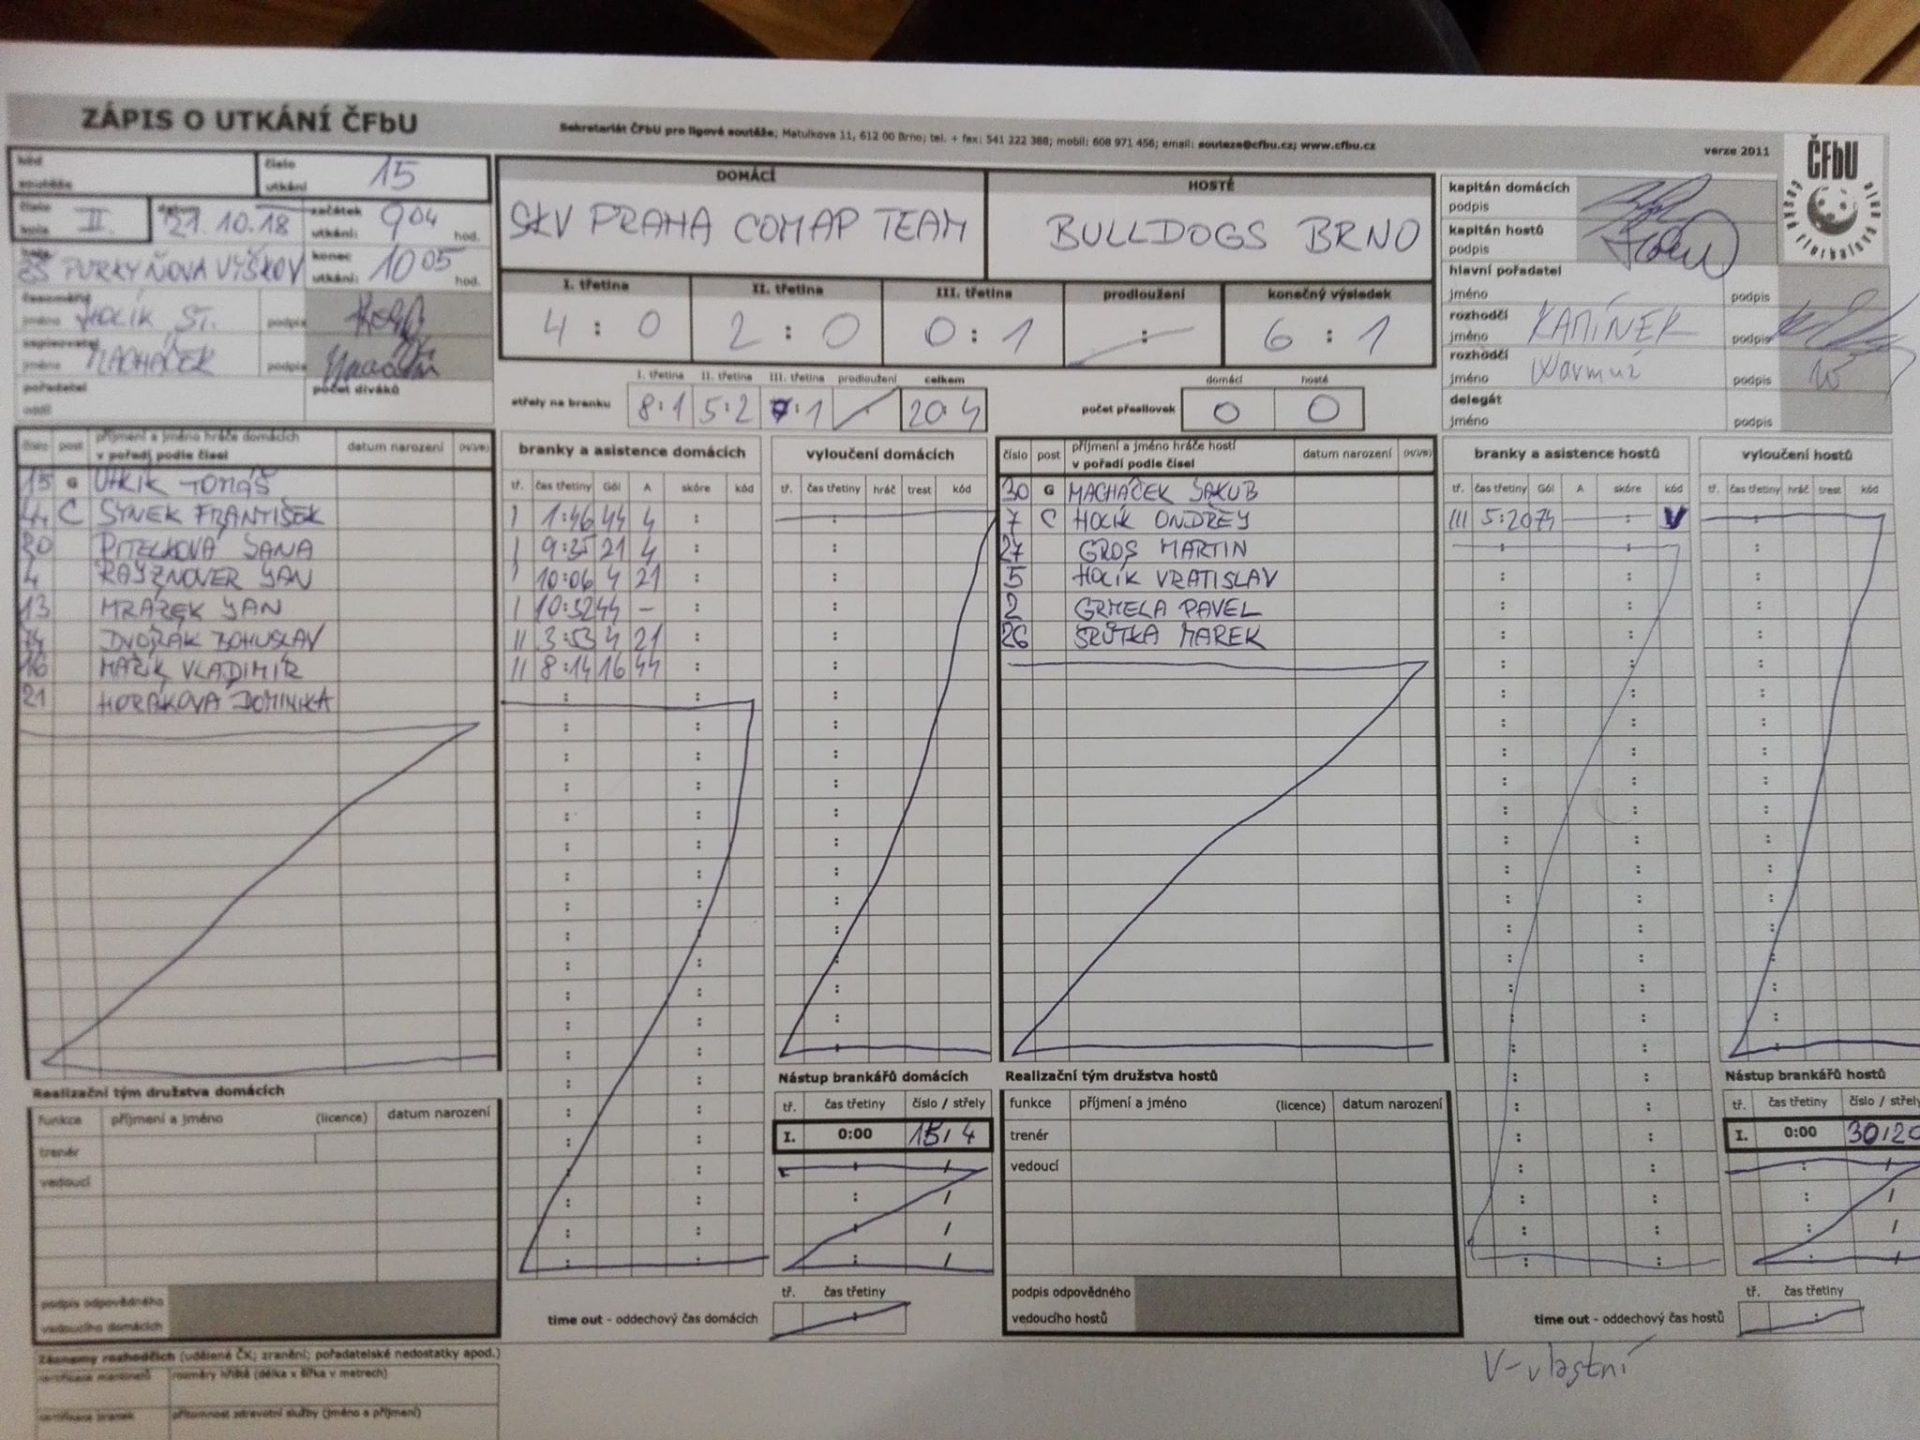 ZÁPIS O UTKÁNÍ ČFbU
Sekretariát ČFbU pro ligové soutěže; Matulkova 11, 612 00 Brno; tel. + fax: 541 222 388; mobil: 608 971 456; email: souteze@cfbu.cz; www.cfbu.cz
verze 2011
ČFbU
kód soutěže
číslo utkání 15
číslo kola II. datum 21.10.18 začátek utkání: 904 hod.
hala ZŠ PURKYŇOVA VYŠKOV konec utkání: 1005 hod.
časoměřič jméno HOLÍK ST. podpis
zapisovatel jméno MACHÁČEK podpis
pořadatel oddíl
počet diváků
DOMÁCÍ
SKV PRAHA COMAP TEAM
HOSTÉ
BULLDOGS BRNO
I. třetina II. třetina III. třetina prodloužení konečný výsledek
4 : 0 2 : 0 0 : 1 : 6 : 1
I. třetina II. třetina III. třetina prodloužení celkem
střely na branku 8:1 5:2 7:1 : 20:4
domácí hosté
počet přesilovek 0 0
kapitán domácích podpis
kapitán hostů podpis
hlavní pořadatel
jméno podpis
rozhodčí
jméno KAMÍNEK podpis
rozhodčí
jméno Warmuz podpis
delegát
jméno podpis
číslo post příjmení a jméno hráče domácích v pořadí podle čísel datum narození
15 G UTKÍK TOMÁŠ
44 C SYNEK FRANTIŠEK
30 PITELKOVÁ JANA
4 RAYZNOVER JAN
13 MRÁZEK JAN
74 DVOŘÁK BOHUSLAV
16 MAŘÍK VLADIMÍR
21 HORÁKOVÁ DOMINIKA
branky a asistence domácích
tř. čas třetiny Gól A skóre kód
I 1:46 44 4 :
I 9:35 21 4 :
I 10:06 4 21 :
I 10:52 44 - :
II 3:53 4 21 :
II 8:14 16 44 :
vyloučení domácích
tř. čas třetiny hráč trest kód
číslo post příjmení a jméno hráče hostí v pořadí podle čísel datum narození
30 G MACHÁČEK JAKUB
7 C HOLÍK ONDŘEJ
27 GROS MARTIN
5 HOLÍK VRATISLAV
2 GRMELA PAVEL
26 SRŮTKA MAREK
branky a asistence hostů
tř. čas třetiny Gól A skóre kód
III 5:20 74 : V
vyloučení hostů
tř. čas třetiny hráč trest kód
Realizační tým družstva domácích
funkce příjmení a jméno (licence) datum narození
trenér
vedoucí
podpis odpovědného
vedoucího domácích
Nástup brankářů domácích
tř. čas třetiny číslo / střely
I. 0:00 15 / 4
tř. čas třetiny
time out - oddechový čas domácích
Realizační tým družstva hostů
funkce příjmení a jméno (licence) datum narození
trenér
vedoucí
podpis odpovědného
vedoucího hostů
Nástup brankářů hostů
tř. čas třetiny číslo / střely
I. 0:00 30 / 20
tř. čas třetiny
time out - oddechový čas hostů
V-vlastní
Záznamy rozhodčích (udělené ČK; zranění; pořadatelské nedostatky apod.)
certifikace mantinelů rozměry hřiště (délka x šířka v metrech)
certifikace branek přítomnost zdravotní služby (jméno a příjmení)